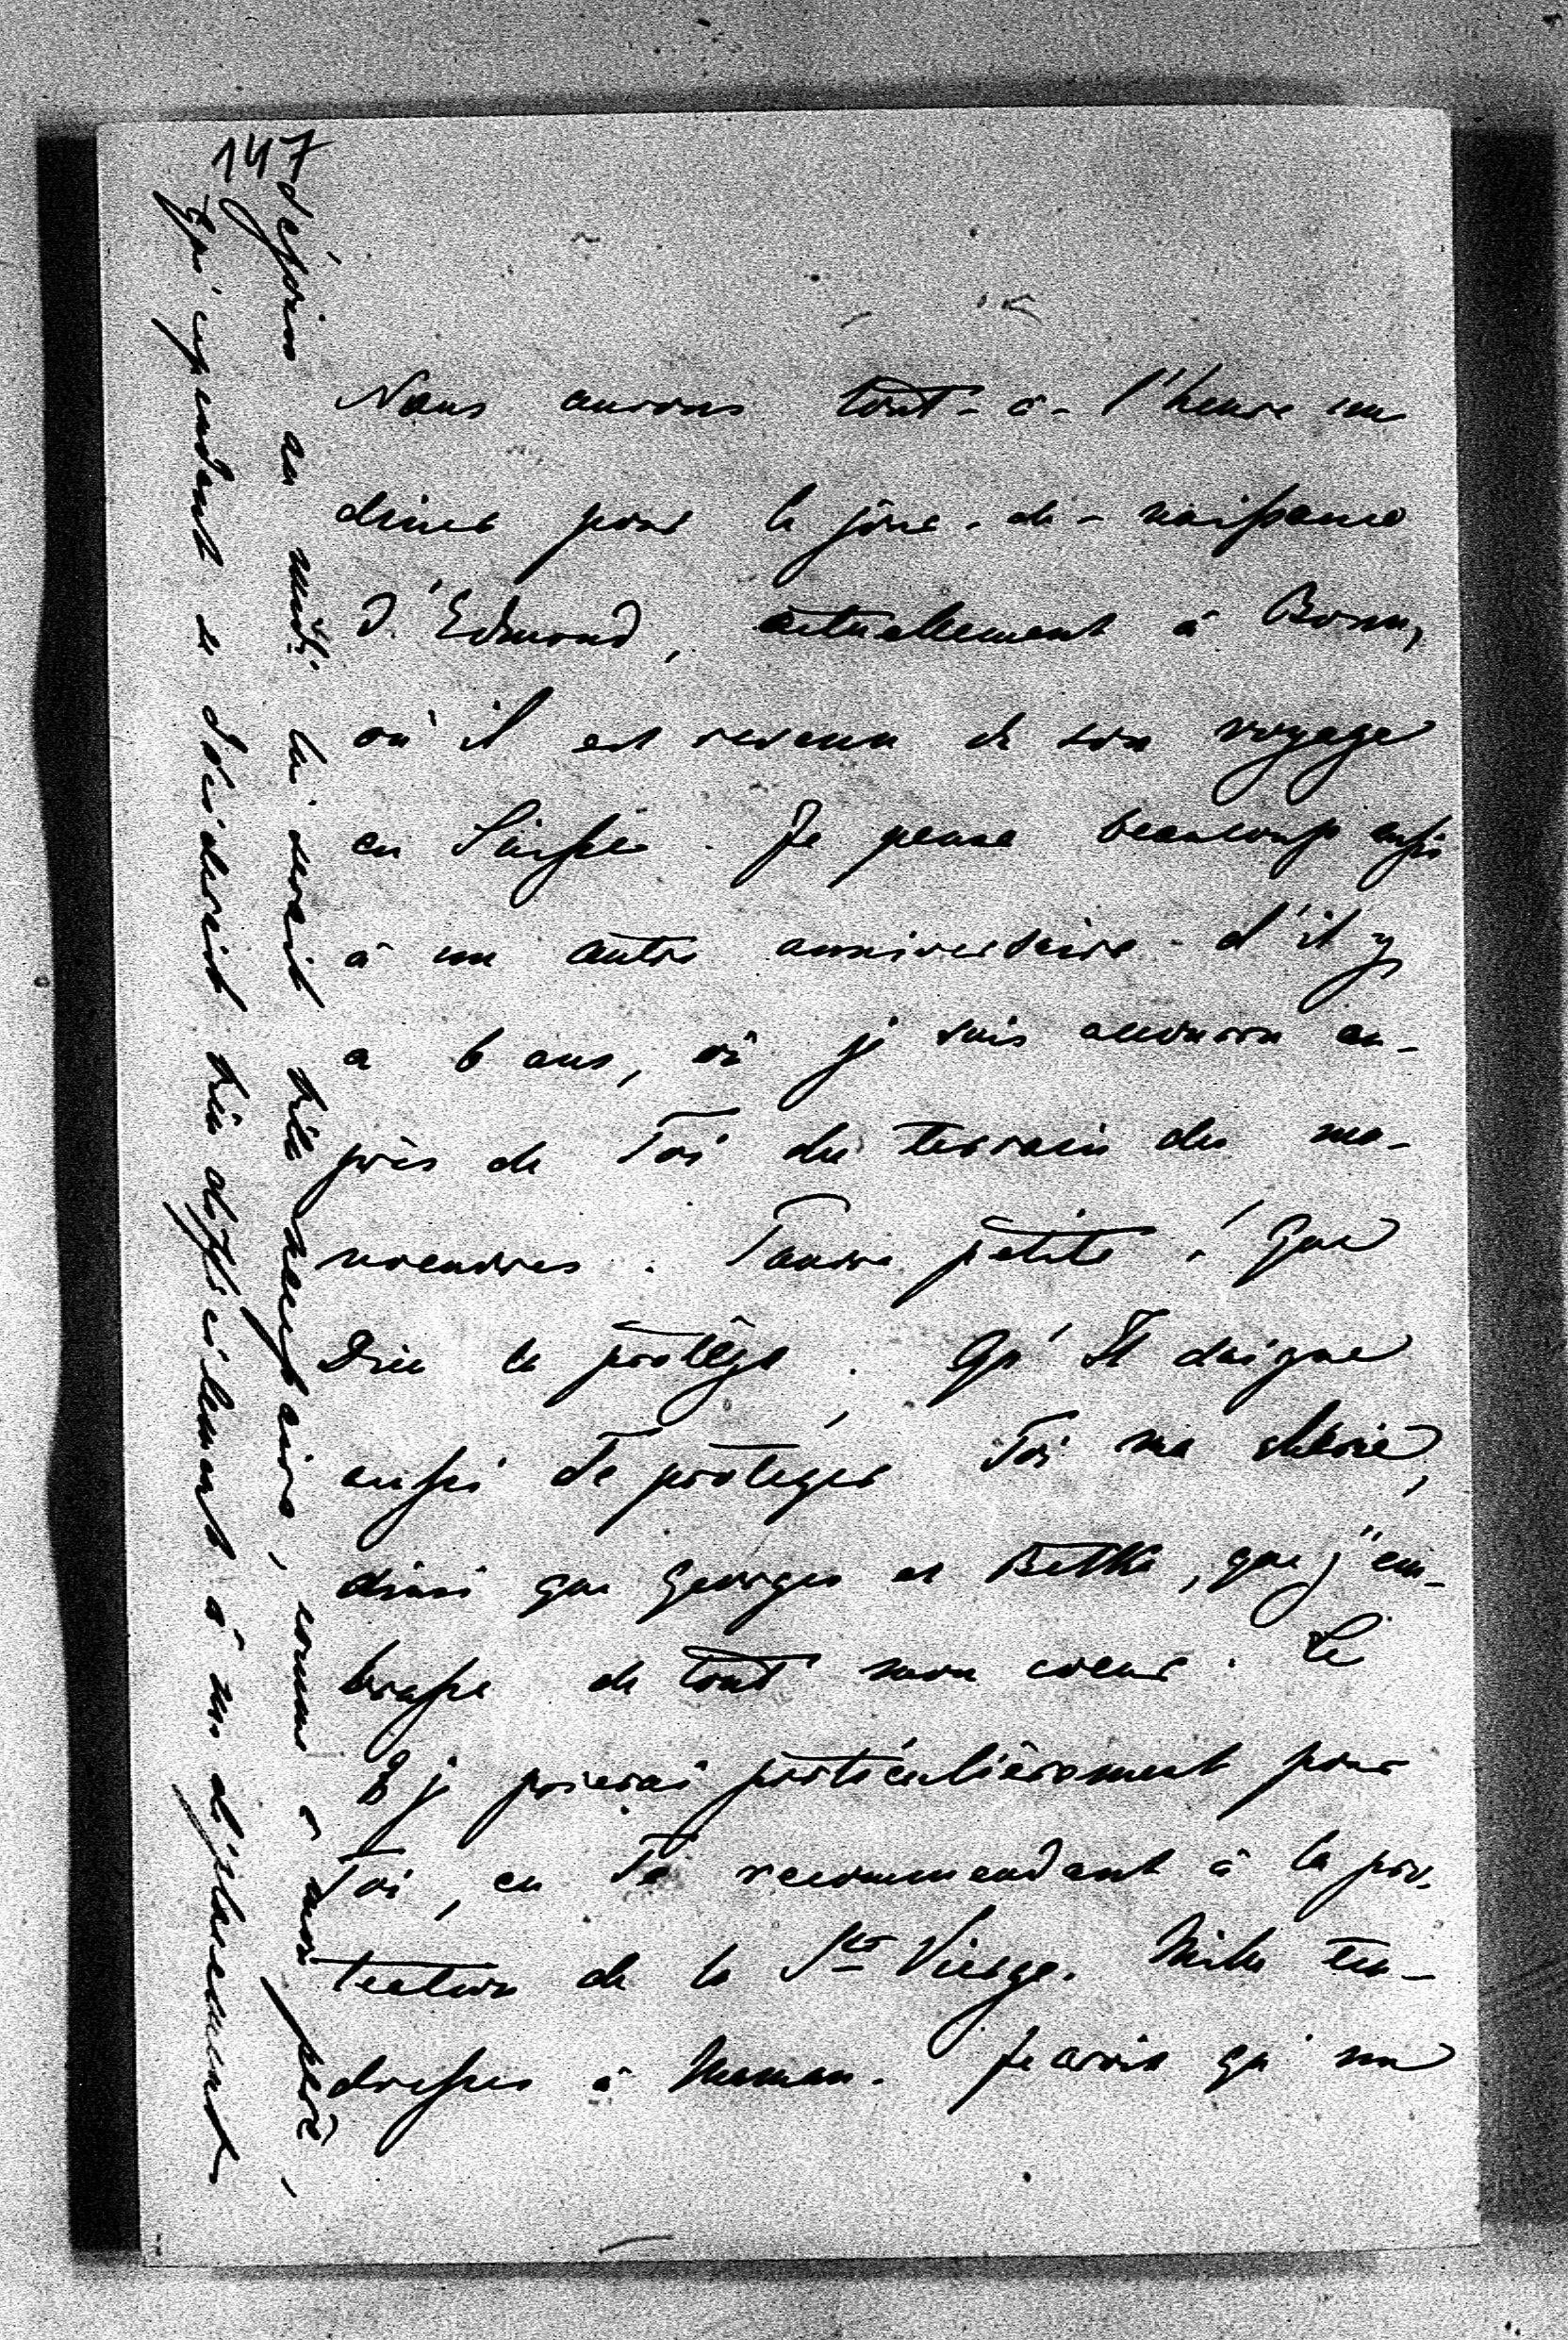 147
Nous aurons tout-à-l'heure un
diner pour le jour-de-naissance
d'Edmond, actuellement à Bonn,
où il est revenu de son voyage
en Suisse. Je pense beaucoup aussi
à un autre anniversaire d'il y
a 6 ans, où je suis accouru au-
près de Toi du terrain des ma-
noeuvres. Pauvre petite! Que
Dieu la protège. Qu'Il daigne
aussi Te protéger Toi ma chérie,
ainsi que Georges et Betka, que j'em-
brasse de tout mon coeur. Le
8 je prierai particulièrement pour
Toi, en Te recommendant à la pro-
tection de la Ste Vierge. Mille ten-
dresses à Maman. Je crois qu'un
séjour au midi lui serait très nécessaire, comme à mon père,
qui cependant se déciderait bien difficilement à un déplacement